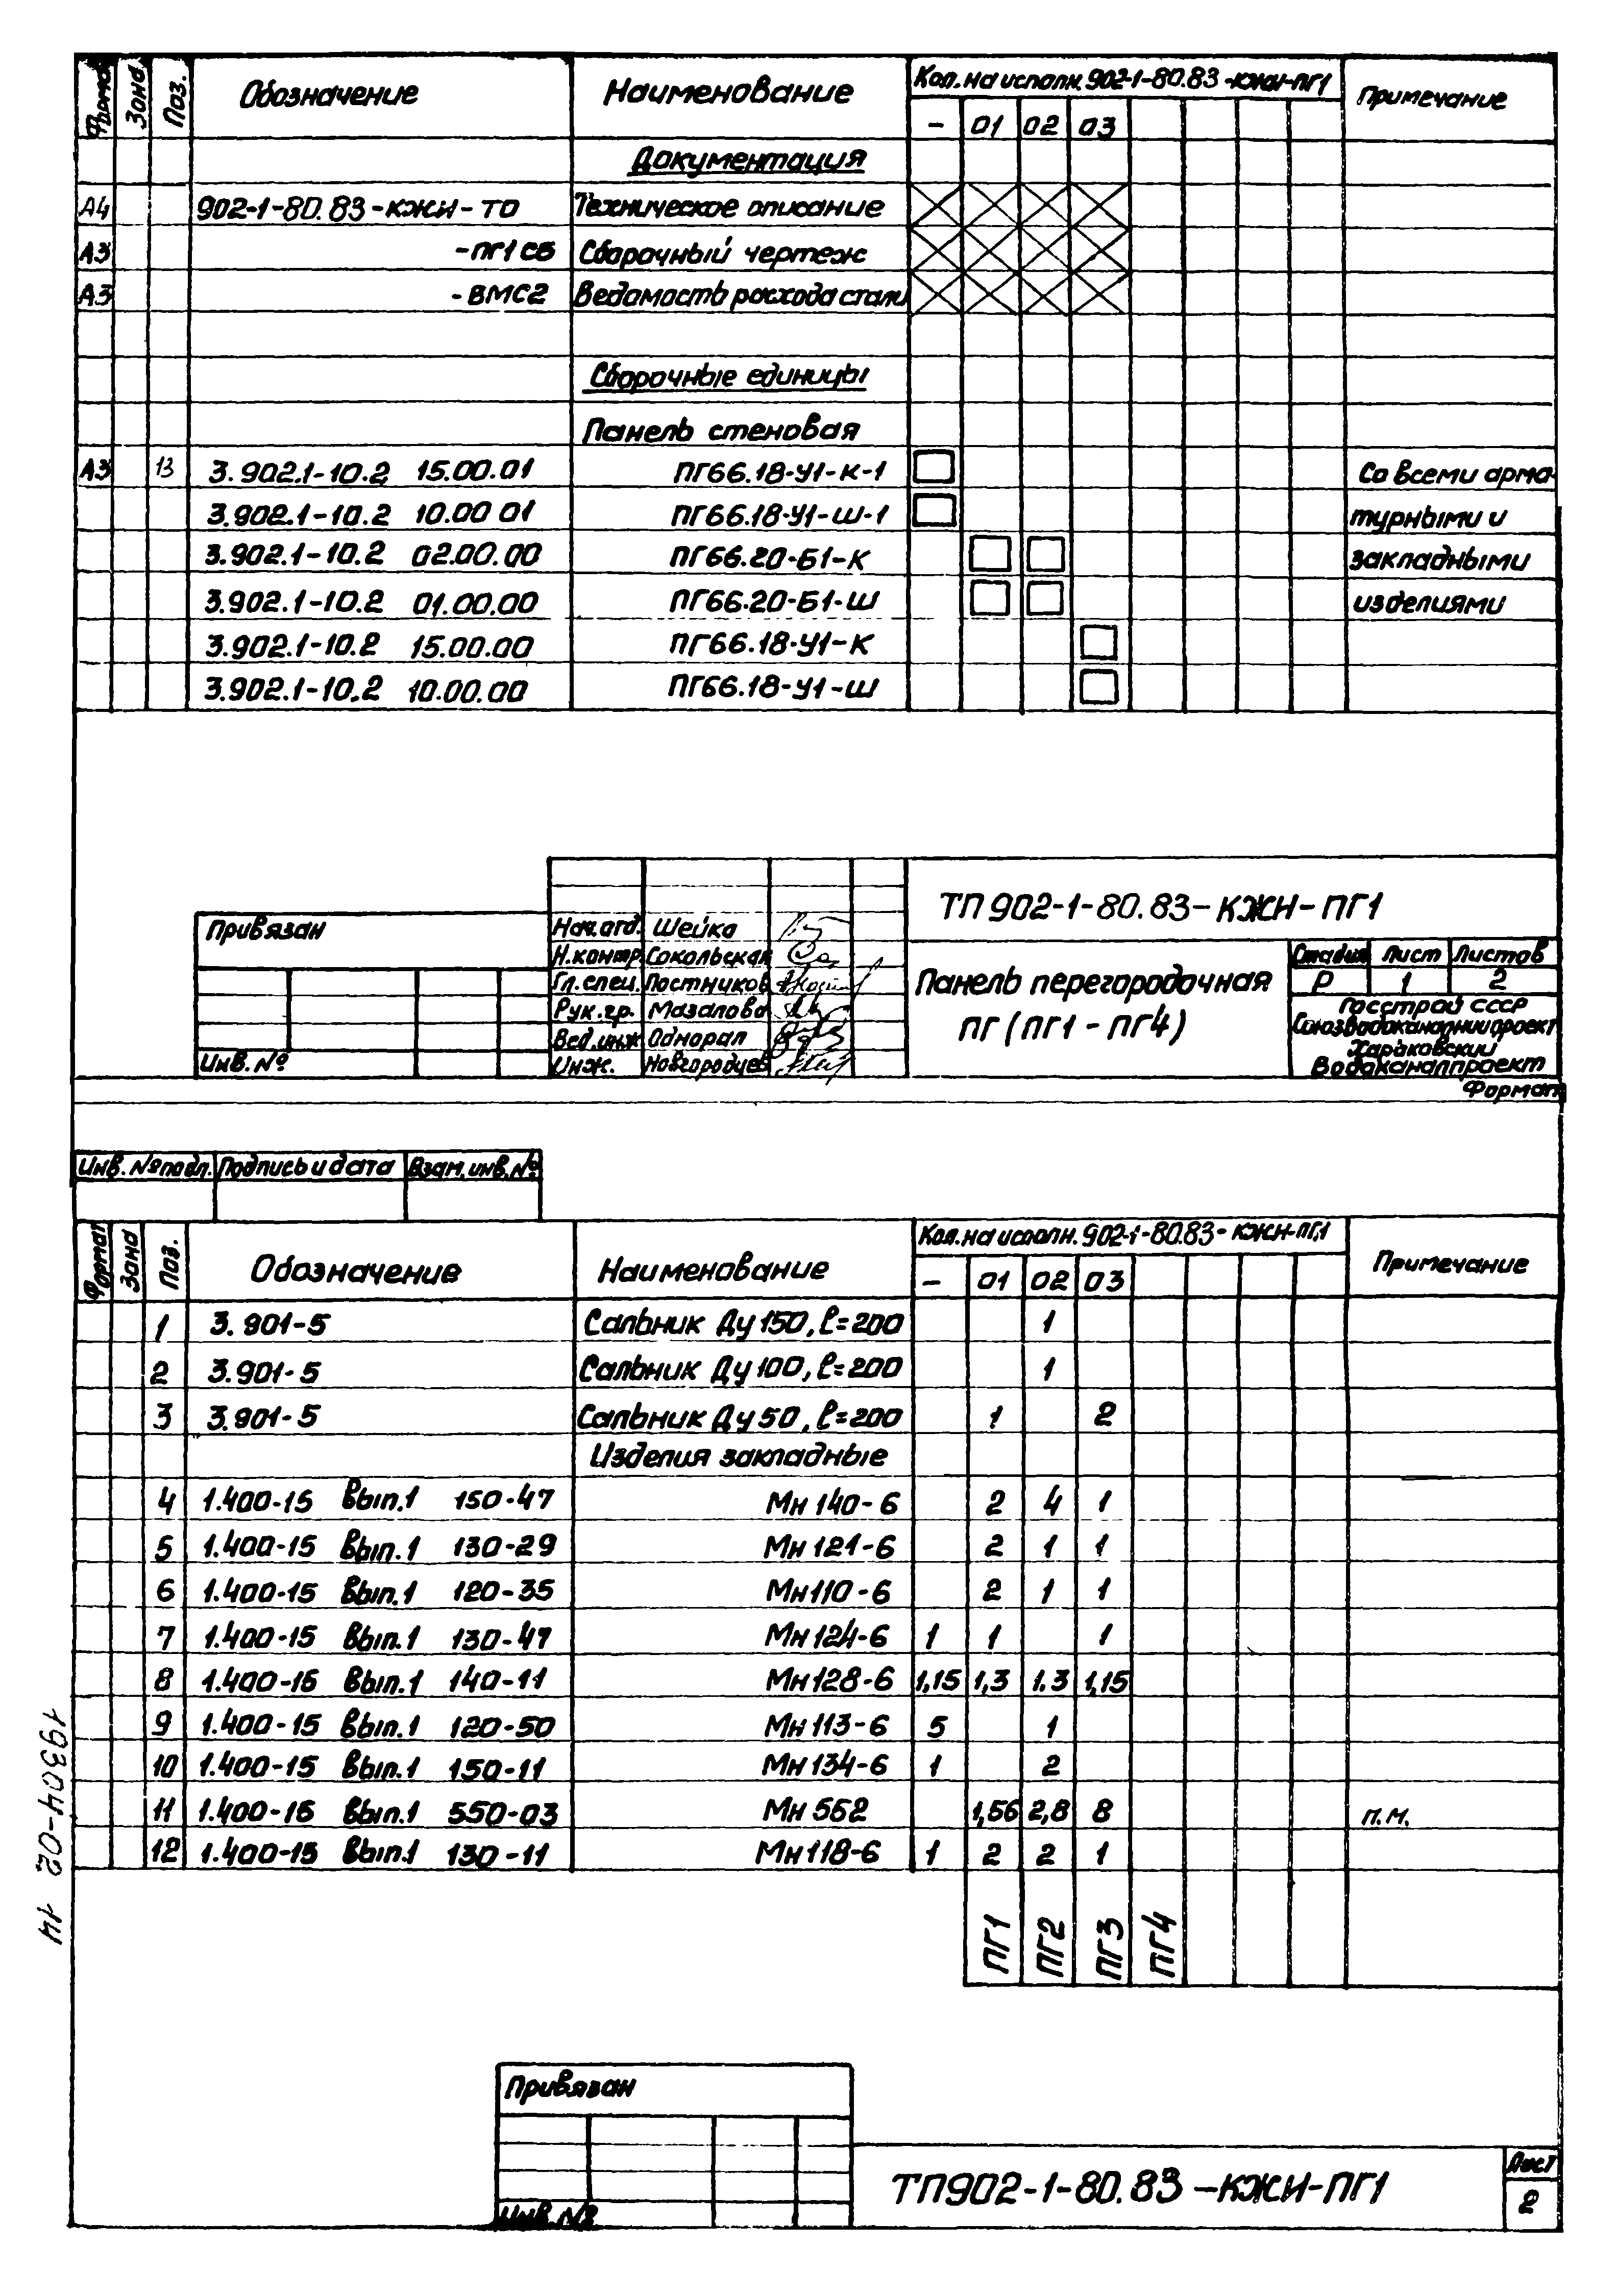 Формат Зона Поз. Обозначение Наименование Кол. на исполн. 902-1-80.83-КЖИ-ПГ1 Примечание
- 01 02 03
Документация
А4 902-1-80.83-КЖИ-ТО Техническое описание
А3 -ПГ1СБ Сборочный чертеж
А3 -ВМС2 Ведомость расхода стали
Сборочные единицы
Панель стеновая
А3 13 3.902.1-10.2 15.00.01 ПГ66.18-У1-К-1 Со всеми арма-
3.902.1-10.2 10.00 01 ПГ66.18-У1-Ш-1 турными и
3.902.1-10.2 02.00.00 ПГ66.20-Б1-К закладными
3.902.1-10.2 01.00.00 ПГ66.20-Б1-Ш изделиями
3.902.1-10.2 15.00.00 ПГ66.18-У1-К
3.902.1-10.2 10.00.00 ПГ66.18-У1-Ш
ТП 902-1-80.83-КЖИ-ПГ1
Привязан
Инв. №
Нач. отд. Шейко
Н. контр. Сокольская
Гл. спец. Постников
Рук. гр. Мазалова
Вед. инж. Однорал
Инж. Новгородцев
Панель перегородочная
ПГ (ПГ1 - ПГ4)
Стадия Лист Листов
Р 1 2
Госстрой СССР
Союзводоканалниипроект
Харьковский
Водоканалпроект
Формат
Инв. № подл. Подпись и дата Взам. инв. №
Формат Зона Поз. Обозначение Наименование Кол. на исполн. 902-1-80.83-КЖИ-ПГ1 Примечание
- 01 02 03
1 3.901-5 Сальник Ду 150, ℓ=200 1
2 3.901-5 Сальник Ду 100, ℓ=200 1
3 3.901-5 Сальник Ду 50, ℓ=200 1 2
Изделия закладные
4 1.400-15 Вып.1 150-47 Мн 140-6 2 4 1
5 1.400-15 Вып.1 130-29 Мн 121-6 2 1 1
6 1.400-15 Вып.1 120-35 Мн 110-6 2 1 1
7 1.400-15 Вып.1 130-47 Мн 124-6 1 1 1
8 1.400-15 Вып.1 140-11 Мн 128-6 1,15 1,3 1.3 1,15
9 1.400-15 Вып.1 120-50 Мн 113-6 5 1
10 1.400-15 Вып.1 150-11 Мн 134-6 1 2
11 1.400-15 Вып.1 550-03 Мн 552 1,56 2,8 8 п.м.
12 1.400-15 Вып.1 130-11 Мн 118-6 1 2 2 1
ПГ1 ПГ2 ПГ3 ПГ4
19304-02 14
Привязан
Инв. №
ТП902-1-80.83-КЖИ-ПГ1
Лист
2